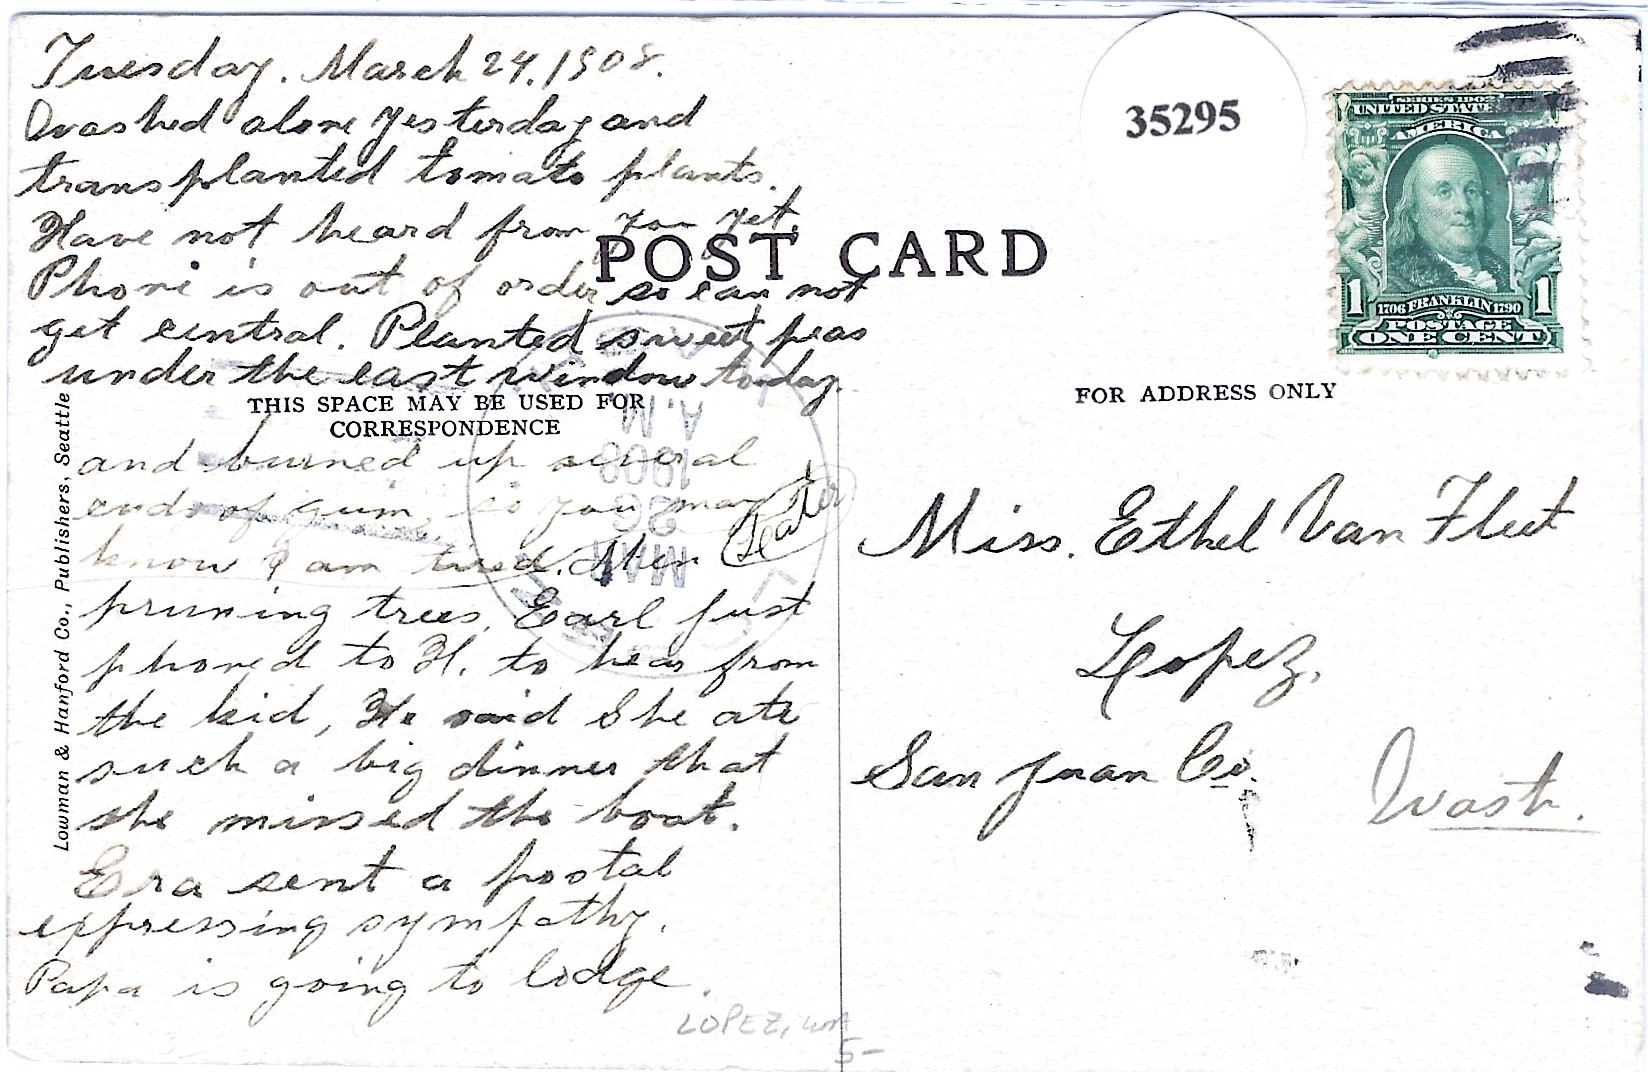 Tuesday. March 24. 1908.
Washed alone yesterday and
transplanted tomato plants.
Have not heard from you yet.
Phone is out of order so can not
get central. Planted sweet peas
under the east window today.
and burned up several
ends of gum, so you may
know I am tired. Men
(Later)
pruning trees. Earl just
phoned to H. to hear from
the kid, He said She ate
such a big dinner that
she missed the boat.
Era sent a postal
expressing sympathy.
Papa is going to lodge.
POST CARD
THIS SPACE MAY BE USED FOR
CORRESPONDENCE
Lowman & Hanford Co., Publishers, Seattle
MAR
26
1908
A.M.
LOPEZ, WA
5-
35295
SERIES 1902
UNITED STATES
AMERICA
1 1706 FRANKLIN 1790 1
POSTAGE
ONE CENT
FOR ADDRESS ONLY
Miss. Ethel Van Fleet
Lopez,
San Juan Co.
Wash.